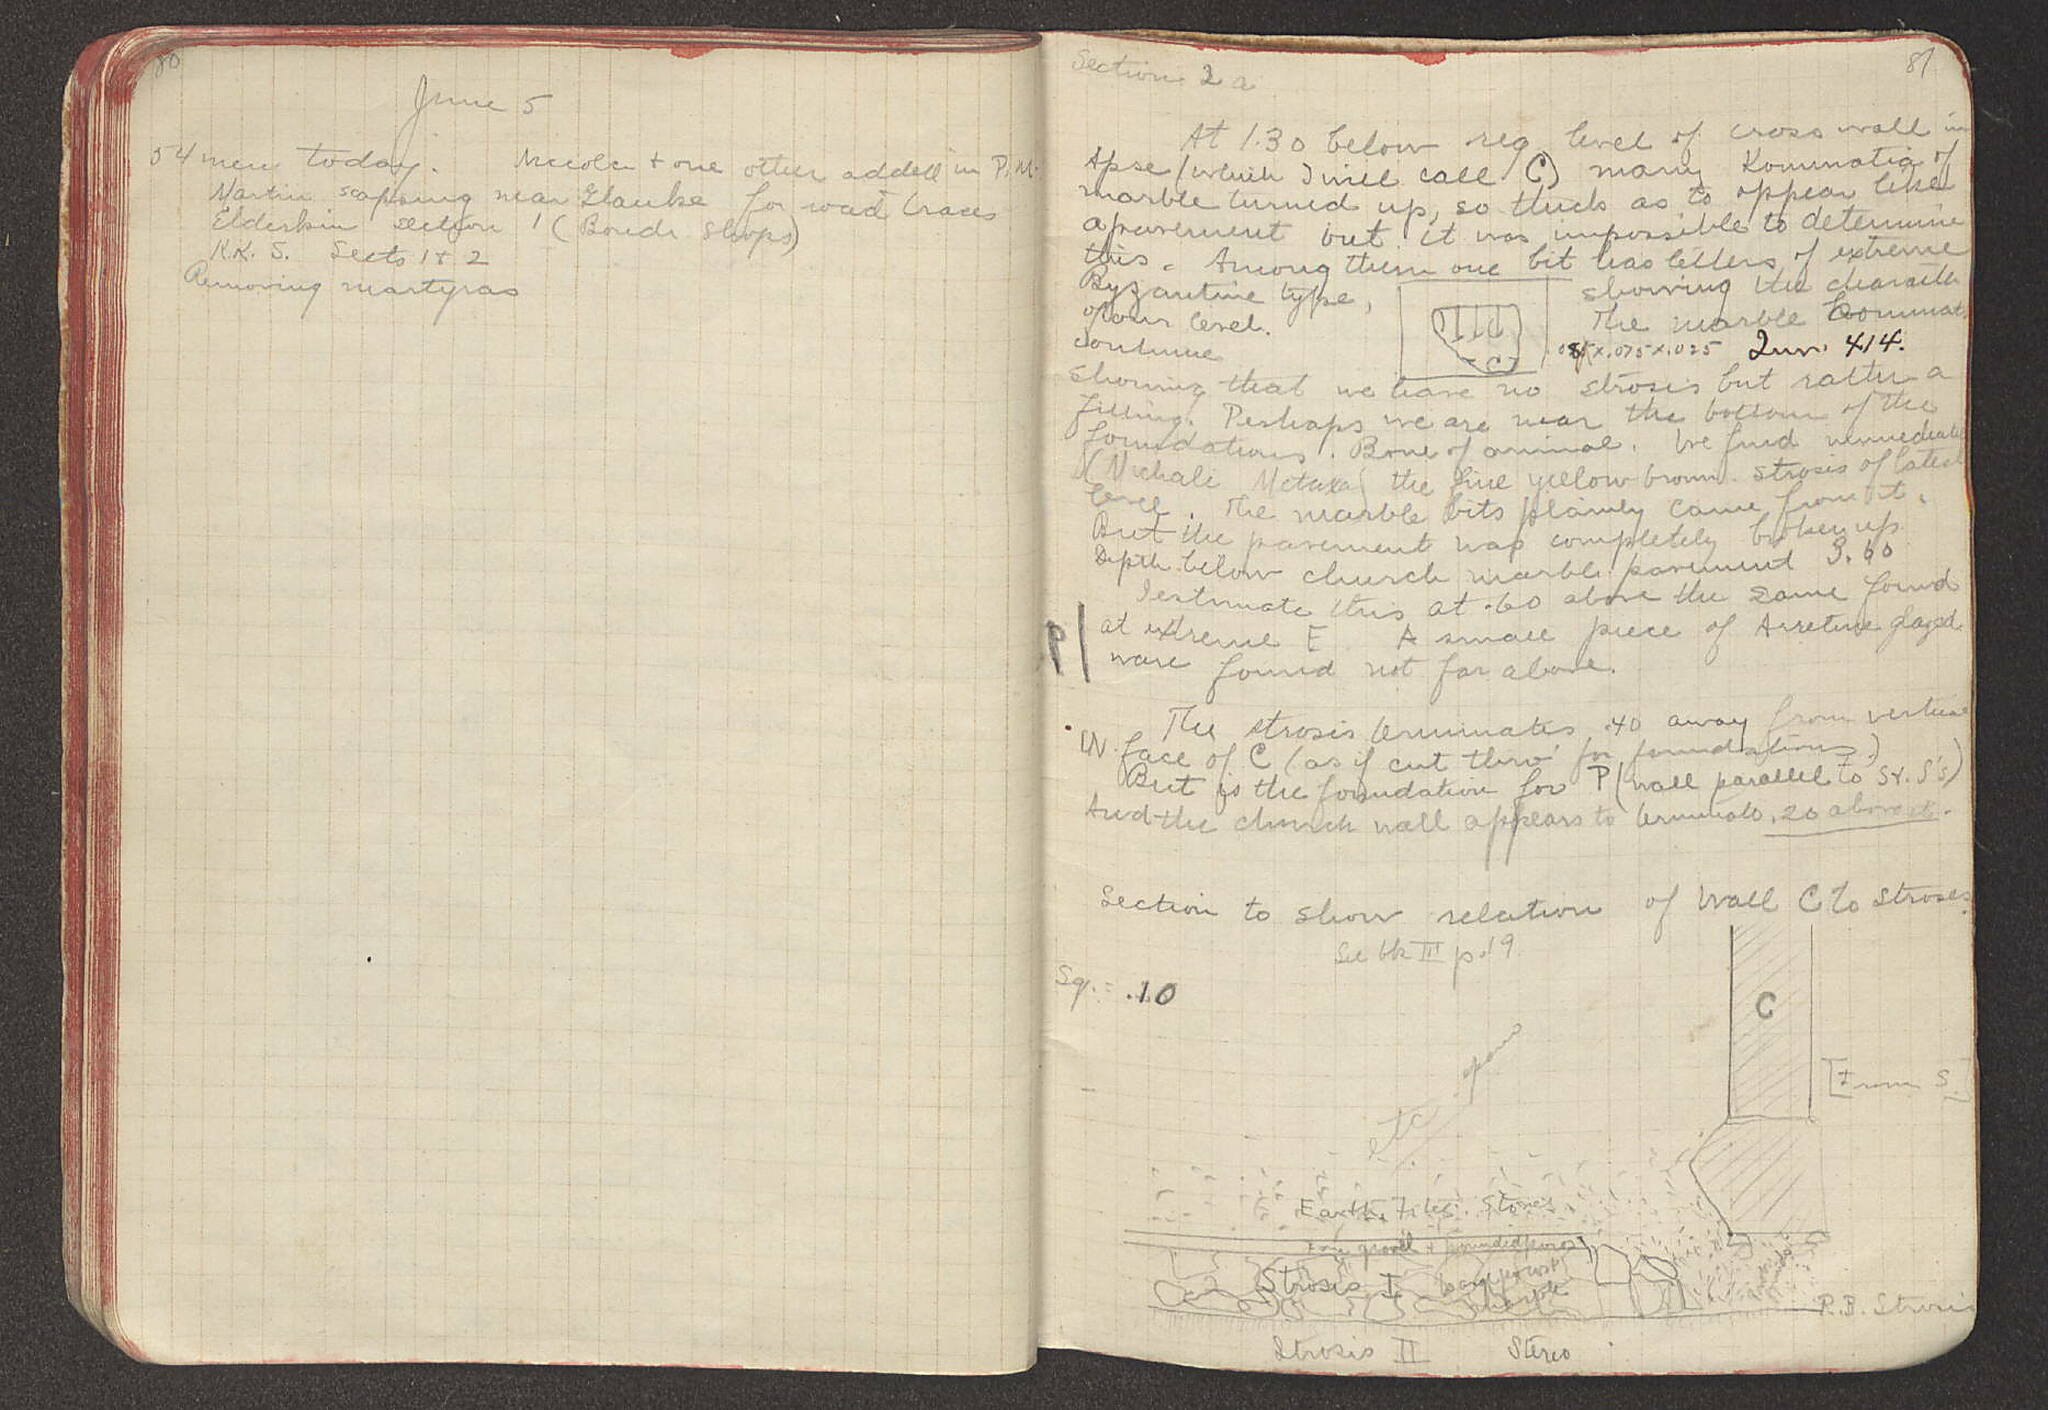 80
June 5
54 men today. Nicola + one other added in P.M.
Martin scarping near Glauke for road traces
Elderkin section 1 (Boudr. Shops)
K.K. S. Sects 1 + 2
Removing martyras
81
Section 2 a
At 1.30 below reg level of cross wall in
Apse (which I will call C) many Kommatia of
marble turned up, so thick as to appear like
a pavement but it was impossible to determine
this. Among them one bit has letters of extreme
Byzantine type, showing the character
of our level. The marble kommat.
continue .085 x .075 x .025 Inv. 414.
showing that we have no strosis but rather a
filling. Perhaps we are near the bottom of the
foundations. Bone of animal. We find immediately
(Michali Metaxa) the fine yellow brown strosis of latest
level. The marble bits plainly came from it.
But the pavement was completely broken up
Depth below church marble pavement 3.60
I estimate this at .60 above the same found
P| at extreme E A small piece of Arretine glazed
ware found not far above.
The strosis terminates .40 away from vertical
W. face of C (as if cut thro' for foundations)
But is the foundation for P (wall parallel to St. S's)
And the church wall appears to terminate .20 above it.
Section to show relation of Wall C to Stroses
See bk III p. 19
Sq. = .10
C
[From S.]
etc.
Earth, Tiles. Stones
gravel + pounded poros
Strosis I
marble
R.B. Strosis
Strosis II Stereo